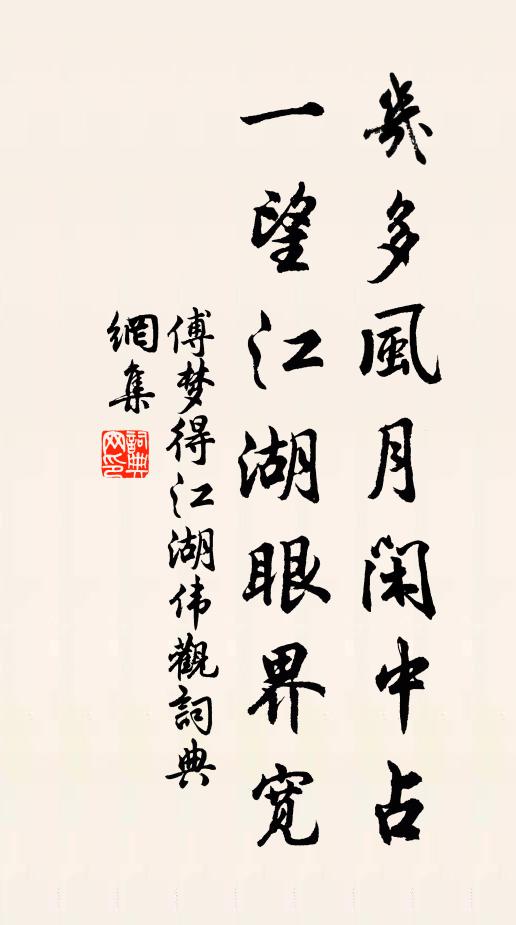 幾多風月閑中占
一望江湖眼界寬
傅梦得江湖伟觀詞典
網集
詞典
网印